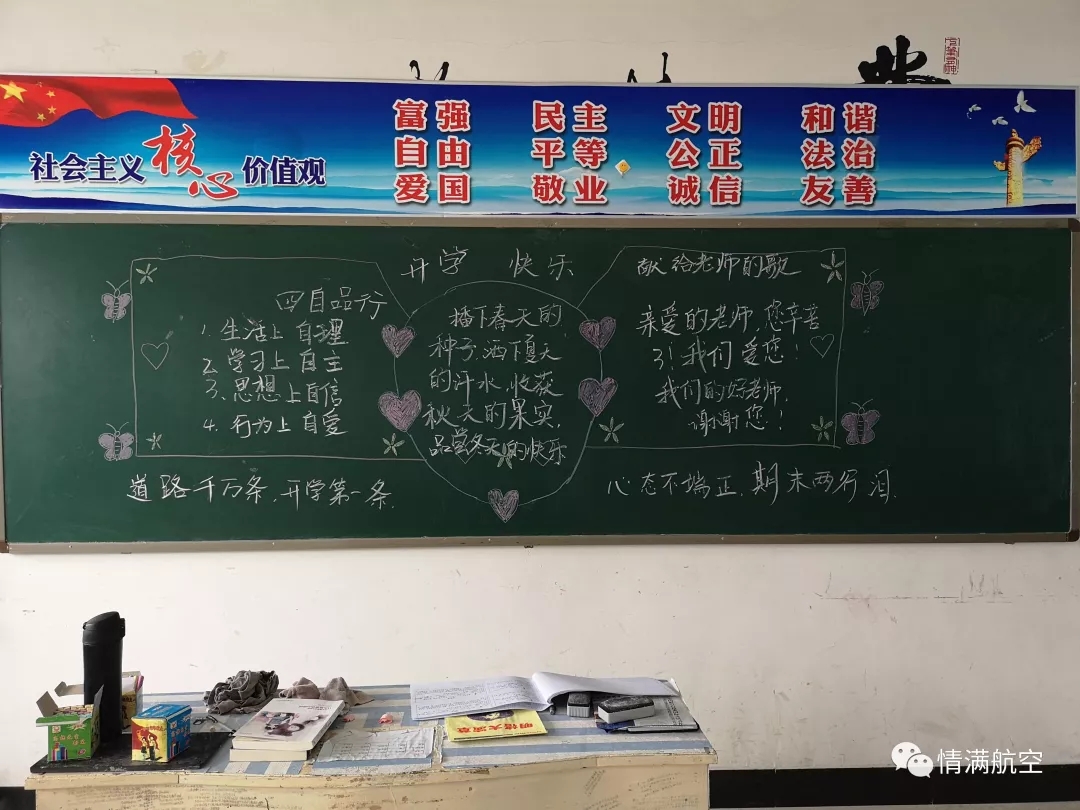 社会主义核心价值观
富强 民主 文明 和谐
自由 平等 公正 法治
爱国 敬业 诚信 友善
开学 快乐
四自品行
1.生活上自理
2.学习上自主
3.思想上自信
4.行为上自爱
播下春天的
种子,洒下夏天
的汗水,收获
秋天的果实,
品尝冬天的快乐
献给老师的歌
亲爱的老师,您辛苦
了!我们爱您!
我们的好老师,
谢谢您!
道路千万条,开学第一条.
心态不端正,期末两行泪.
情满航空